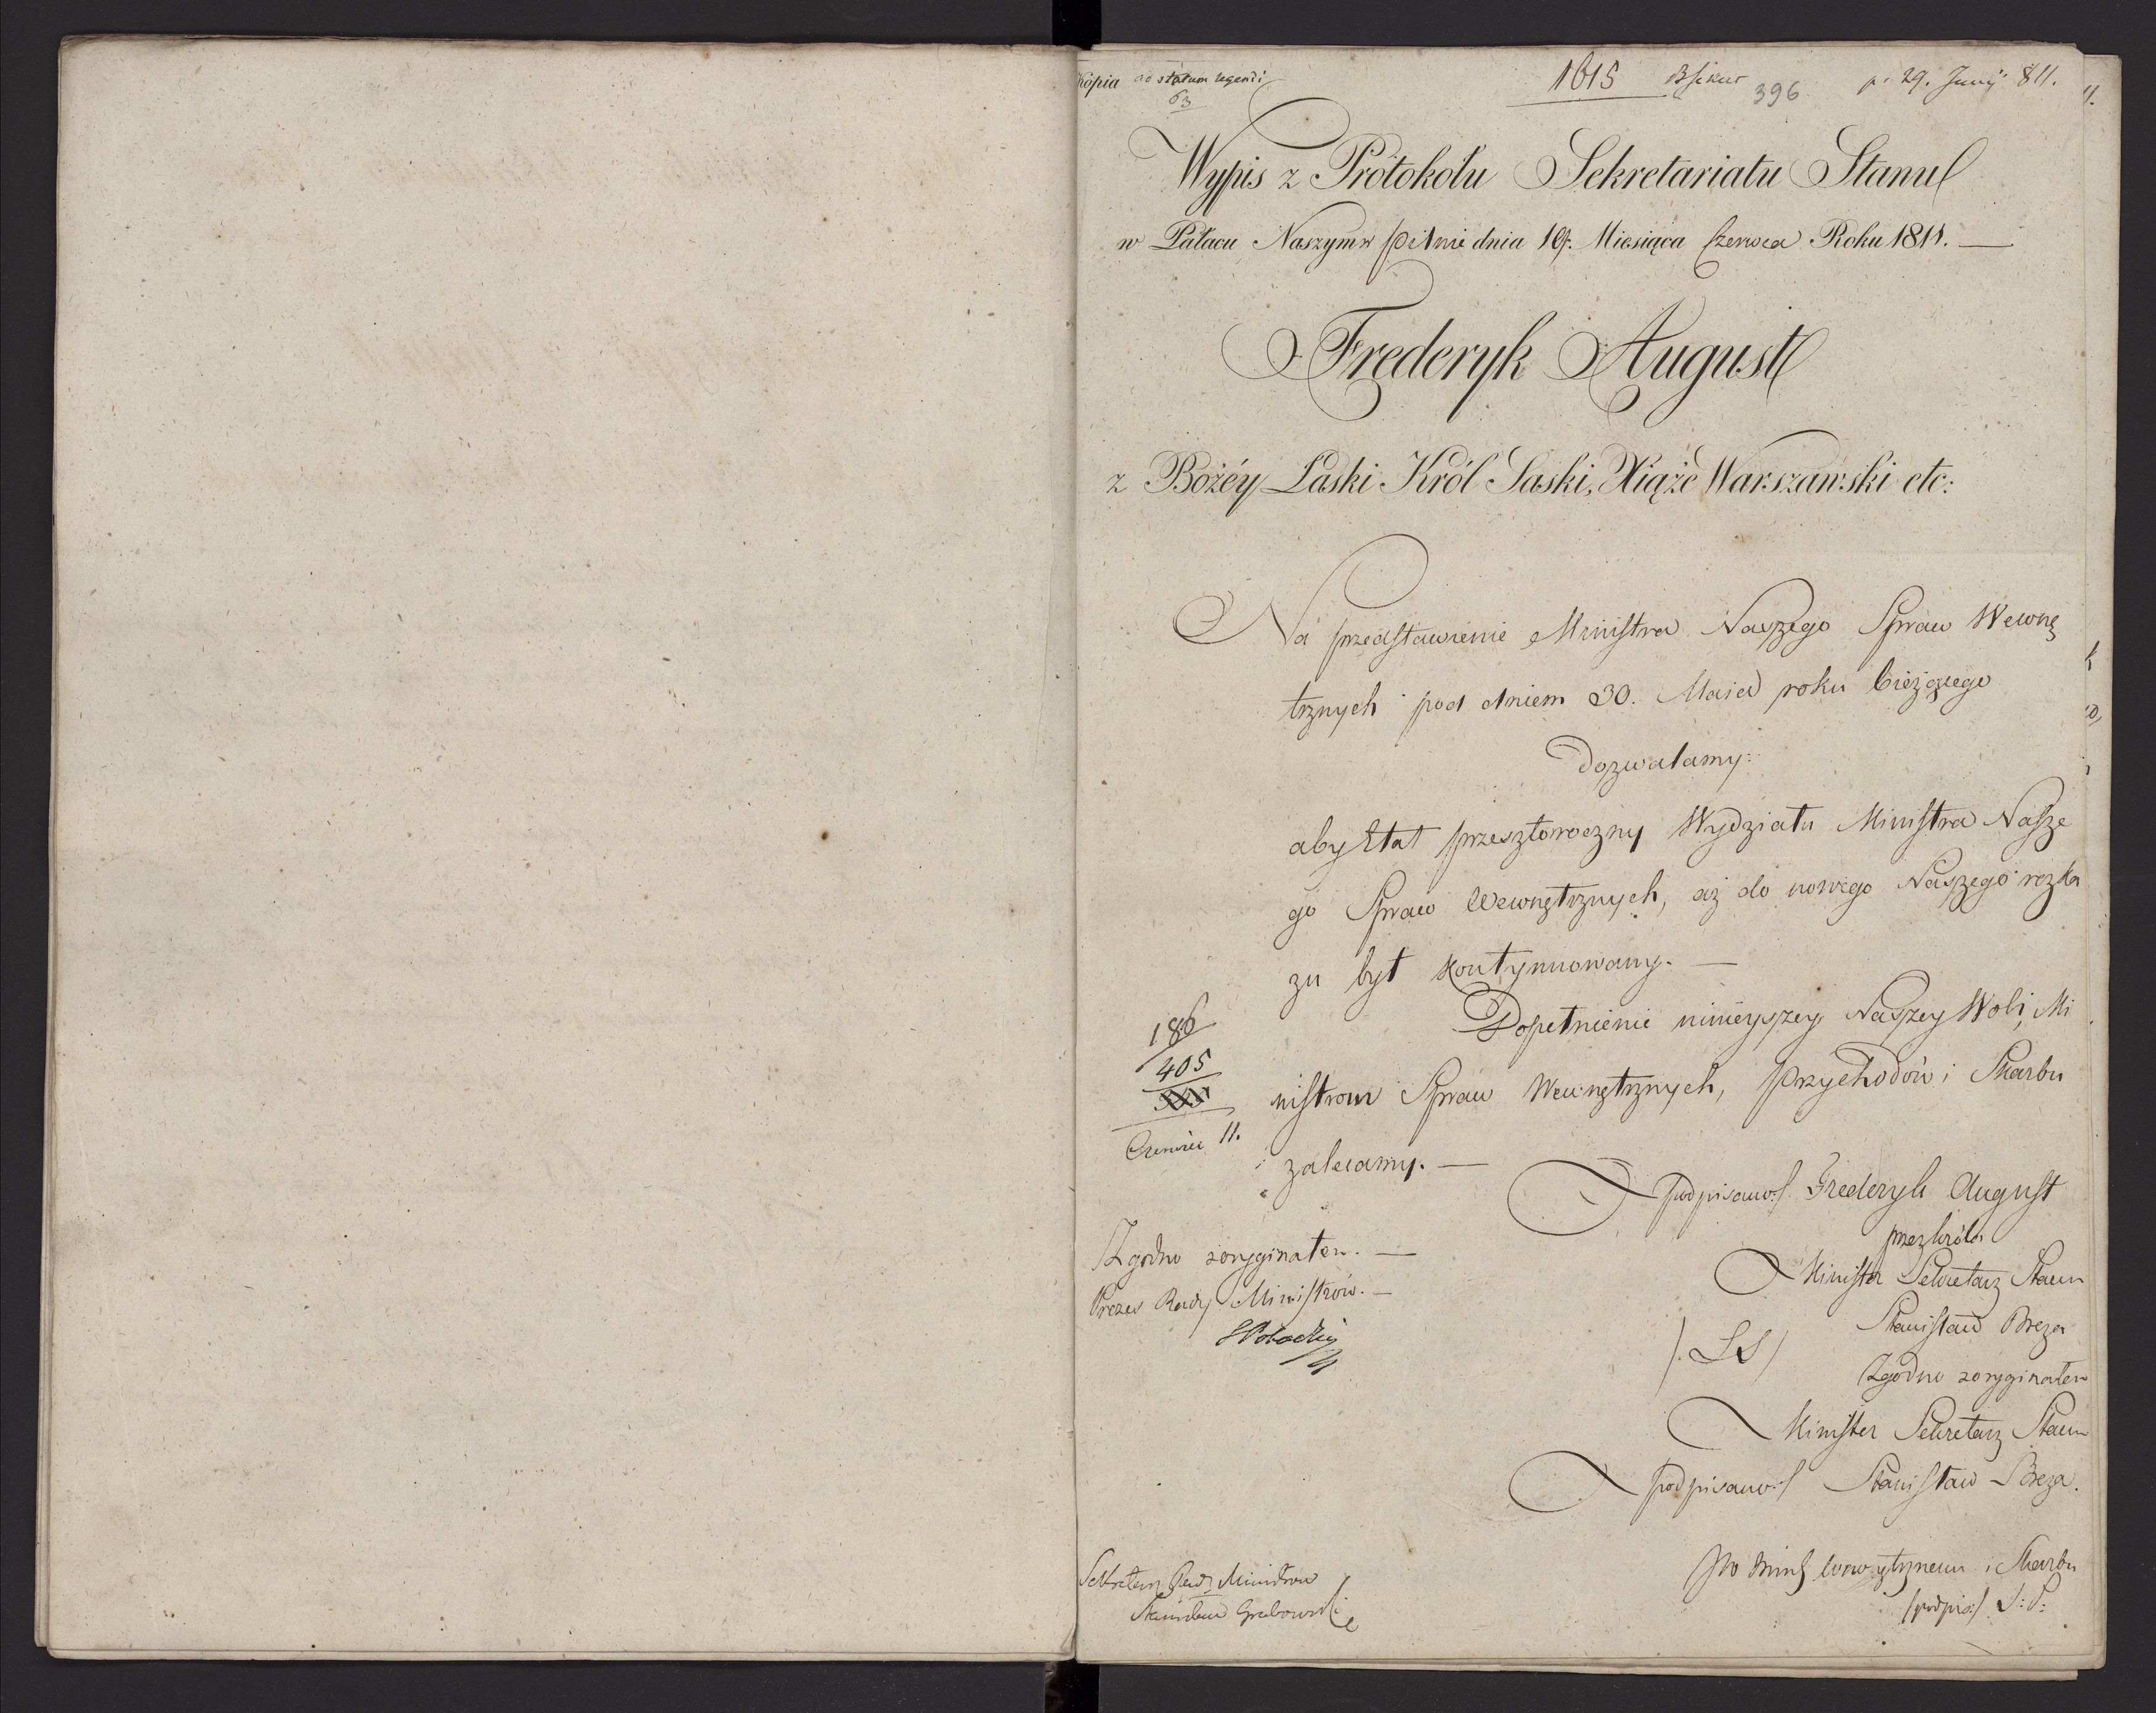 Kopia ad statum legendi 1615 396 p. 29. Junij 811.
63
Wypis z Protokołu Sekretariatu Stanu
w Pałacu Naszym w Pilnie dnia 19. Miesiąca Czerwca Roku 1811. —
Frederyk August
z Bożéy Łaski Król Saski, Xiąże Warszawski etc:
Na przedstawienie Ministra Naszego Spraw Wewnę
trznych pod dniem 30. Maia roku bieżącego
Dozwalamy:
aby Etat przeszłoroczny Wydziału Ministra Nasze
go Spraw Wewnętrznych, aż do nowego Naszego rozka
zu był kontynuowany. —
Dopełnienie ninieyszey Naszey Woli, Mi
nistrom Spraw Wewnętrznych, Przychodów i Skarbu
zalecamy. —
186
405
Czerwiec 11.
podpisano:/ Frederyk August
przez Króla
Minister Sekretarz Stanu
Stanisław Breza
/: LS /
Zgodno z oryginałem
Minister Sekretarz Stanu
podpisano:/ Stanisław Breza.
Zgodno z oryginałem. —
Prezes Rady Ministrów. —
SPotocki
Sekretarz Rady Ministrów
Stanisław Grabowski
Skarbu
/podpis:/ S: P: